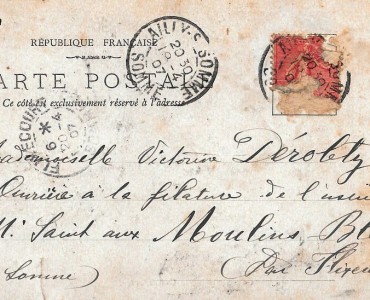 RÉPUBLIQUE FRANÇAISE
ARTE POSTALE
Ce côté est exclusivement réservé à l'adresse
AILLY-S-SOMME
SOMME
20 30
07
FLIXECOURT
demoiselle Victorine Dérolety
Ouvrière à la filature de l'usine
Mr Saint aux Moulins Bl
Somme
par Flixe